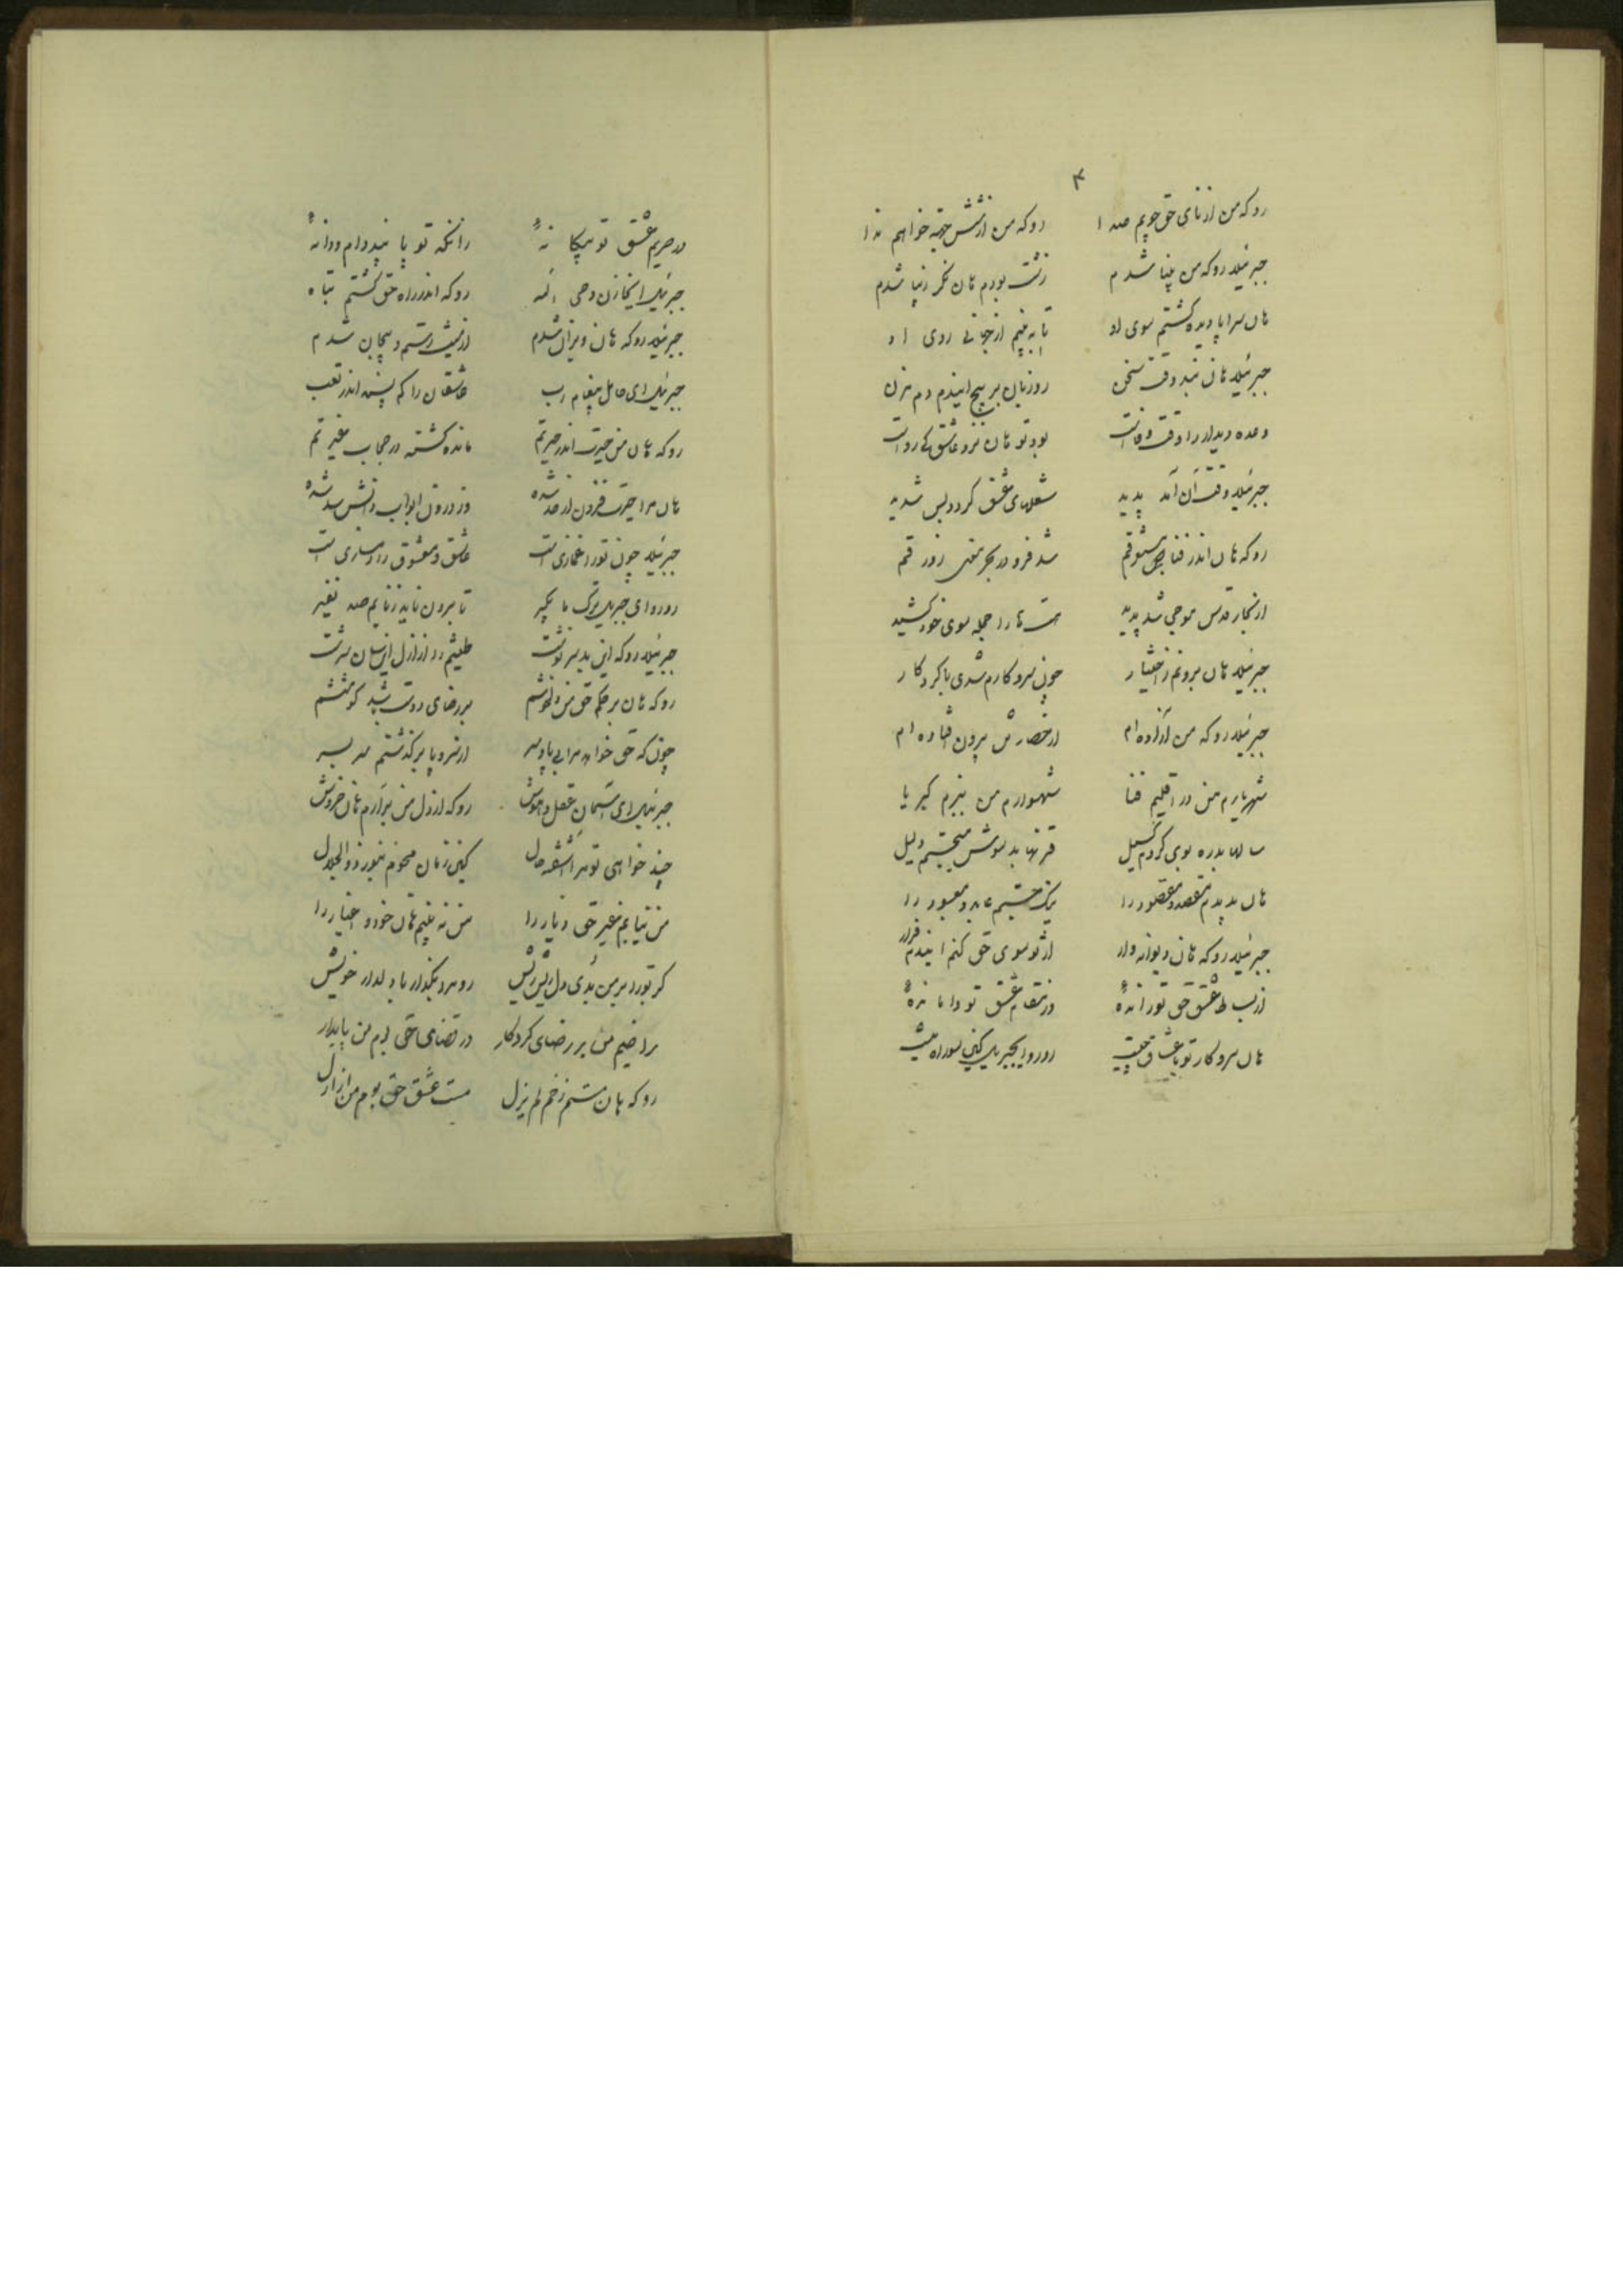 ۴
رو که من از نای حق جویم صدا رو که من از شش جهة خواهم ندا
جبرئیلا رو که من بینا شدم زشت بودم هان نگر زیبا شدم
هان سراپا دیده گشتم سوی او تا به بینم از تجلی روی او
جبرئیلا هان نبد وقت سخن رو زبان بر پیچ ایندم دم مزن
وعده دیدار را وقت وفاست بود تو هان نزد عاشق کی رواست
جبرئیلا وقت آن آمد پدید شعلهای عشق گردد بس شدید
رو که هان اندر فنا شد فرو در بحر معنی زورقم
از بحار قدس موجی شد پدید هست ما را جمله سوی خود کشید
جبرئیلا هان برونم ز اختیار چون سر و کارم شدی با کردکار
جبرئیلا رو که من آزاده‌ام از حصارش برون افتاده‌ام
شهریارم من در اقلیم فنا شهسوارم من ببزم کبریا
سالها بدره بوی کردم سبیل قرنها بد سویش میجستم دلیل
هان بدیدم مقصد و مقصود را یک جستم عابد و معبود را
جبرئیلا رو که هان دیوانه‌وار از تو سوی حق کنم ایندم فرار
از بساط عشق حق تو رانده در مقام عشق تو وامانده
هان سر و کار تو با عشاق چیست رو رو ایجبریل کاین سو راه نیست
در حریم عشق تو بیگانه زانکه تو پا بند دام و دانه
جبرئیل ایخازن وحی اله رو که اندر راه حق گشتم تباه
جبرئیلا رو که هان ویران شدم از نیستی رستم و بیجان شدم
جبرئیل ای حامل پیغام رب عاشقان را کم پسند اندر تعب
رو که هان من حیرت اندر حیرتم مانده گشته در حجاب غیرتم
هان مرا حیرت فزون از حد شده وز درون ابواب دانش سد شده
جبرئیلا چون تو را غمازی است عاشق و معشوق را دمسازی است
رو رو ای جبریل ترک ما بگیر تا برون ناید ز نایم صد نفیر
جبرئیلا رو که این بد سرنوشت طینتم را از ازل اینسان سرشت
رو که هان بر حکم حق من دلخوشم بر رضای دوست باشد کوششم
چون که حق خواند مرا بی پا و سر از سر و پا بر گذشتم سر بسر
جبرئیل ای آسمان عقل و هوش رو که از دل من برآرم هان خروش
چند خواهی تو مرا آشفته حال کاین زمان محوم بنور ذوالجلال
من نیابم غیر حق دیار را من نه بینم هان خود و اغیار را
گر تو را بر من بدی دل ریش ریش رو مرو بگذار با دلدار خویش
راضیم من بر رضای کردگار در قضای حق بوم من پایدار
رو که هان مستم ز خم لم یزل مست عشق حق بوم من از ازل